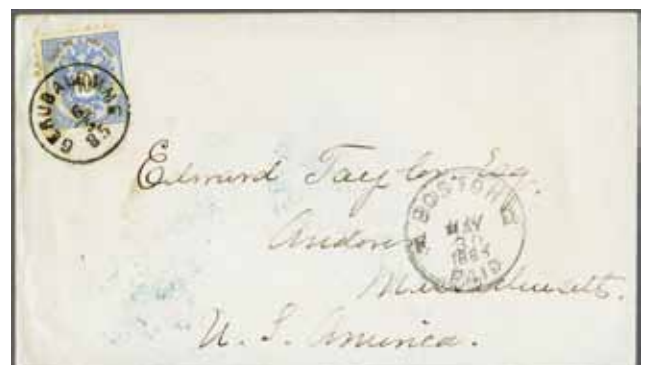 10
GERUSALEMME
85
Edward Taylor Esq.
Andover
Massachusetts.
U. S. America.
BOSTON
MAY
30
PAID